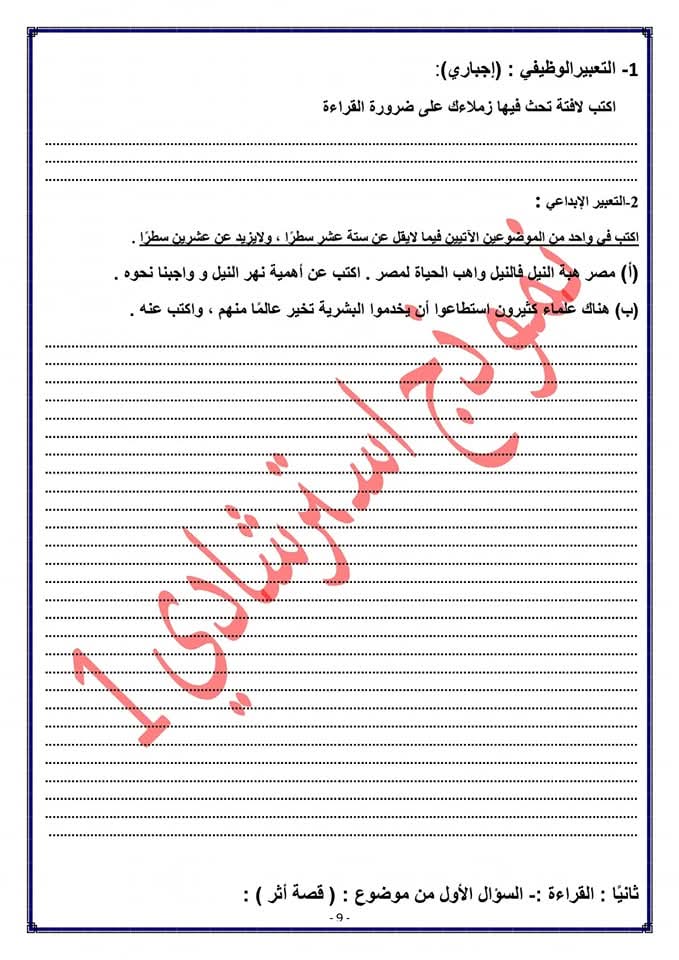 1- التعبيرالوظيفي : (إجباري):
اكتب لافتة تحث فيها زملاءك على ضرورة القراءة
2-التعبير الإبداعي :
اكتب في واحد من الموضوعين الآتيين فيما لايقل عن ستة عشر سطرًا ، ولايزيد عن عشرين سطرًا .
(أ) مصر هبة النيل فالنيل واهب الحياة لمصر . اكتب عن أهمية نهر النيل و واجبنا نحوه .
(ب) هناك علماء كثيرون استطاعوا أن يخدموا البشرية تخير عالمًا منهم ، واكتب عنه .
نموذج استرشادي 1
ثانيًا : القراءة :- السؤال الأول من موضوع : ( قصة أثر ) :
- 9 -